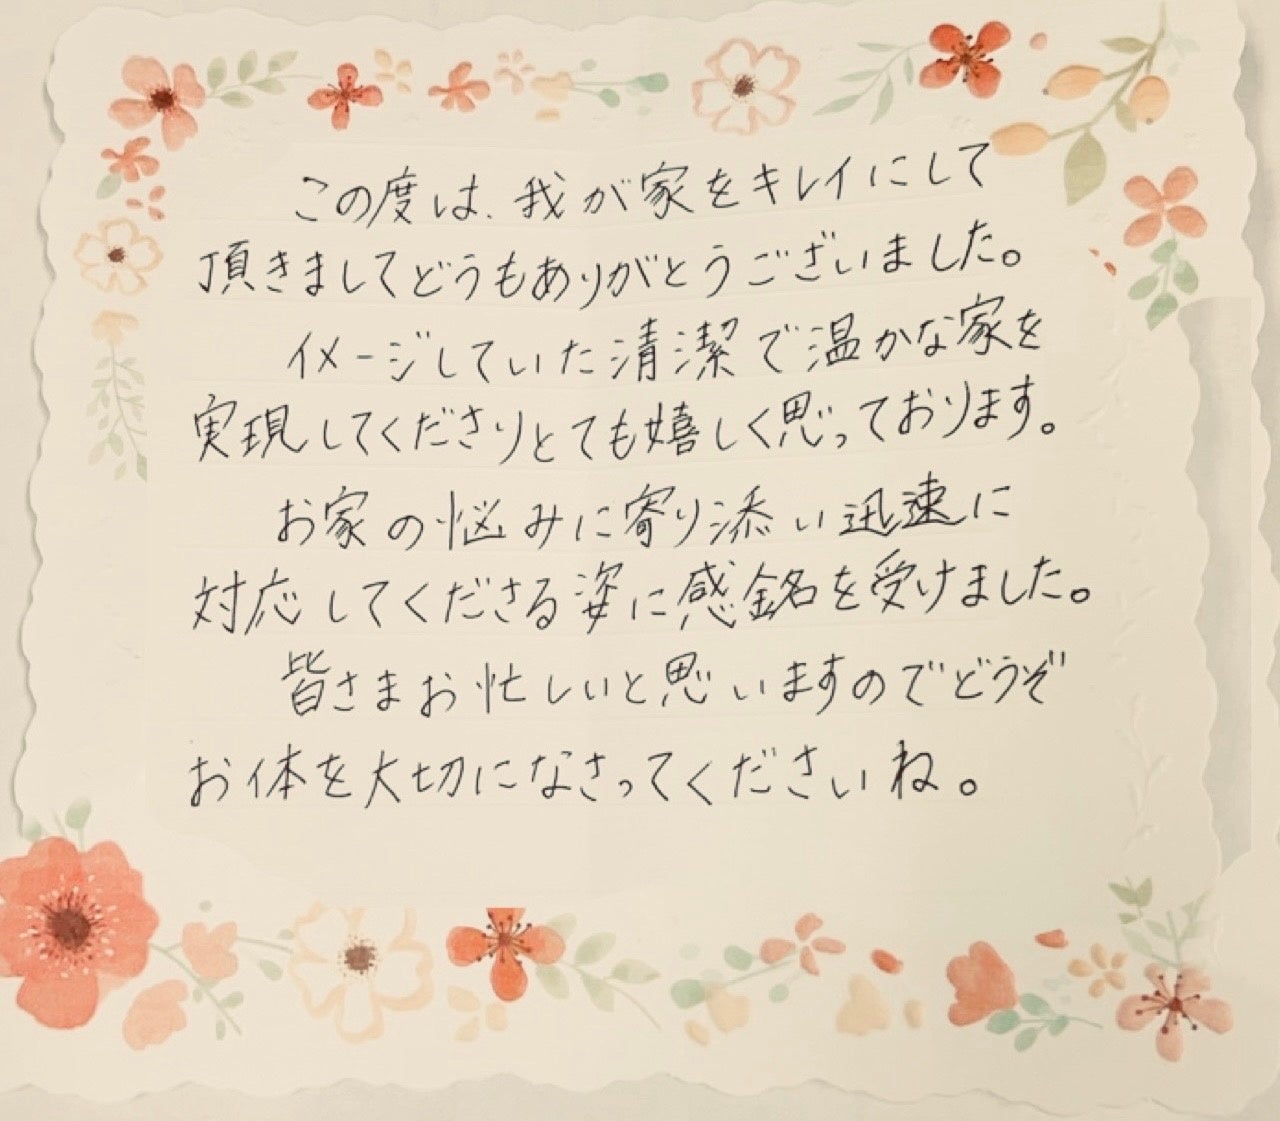 この度は、我が家をキレイにして
頂きましてどうもありがとうございました。
イメージしていた清潔で温かな家を
実現してくださりとても嬉しく思っております。
お家の悩みに寄り添い迅速に
対応してくださる姿に感銘を受けました。
皆さまお忙しいと思いますのでどうぞ
お体を大切になさってくださいね。